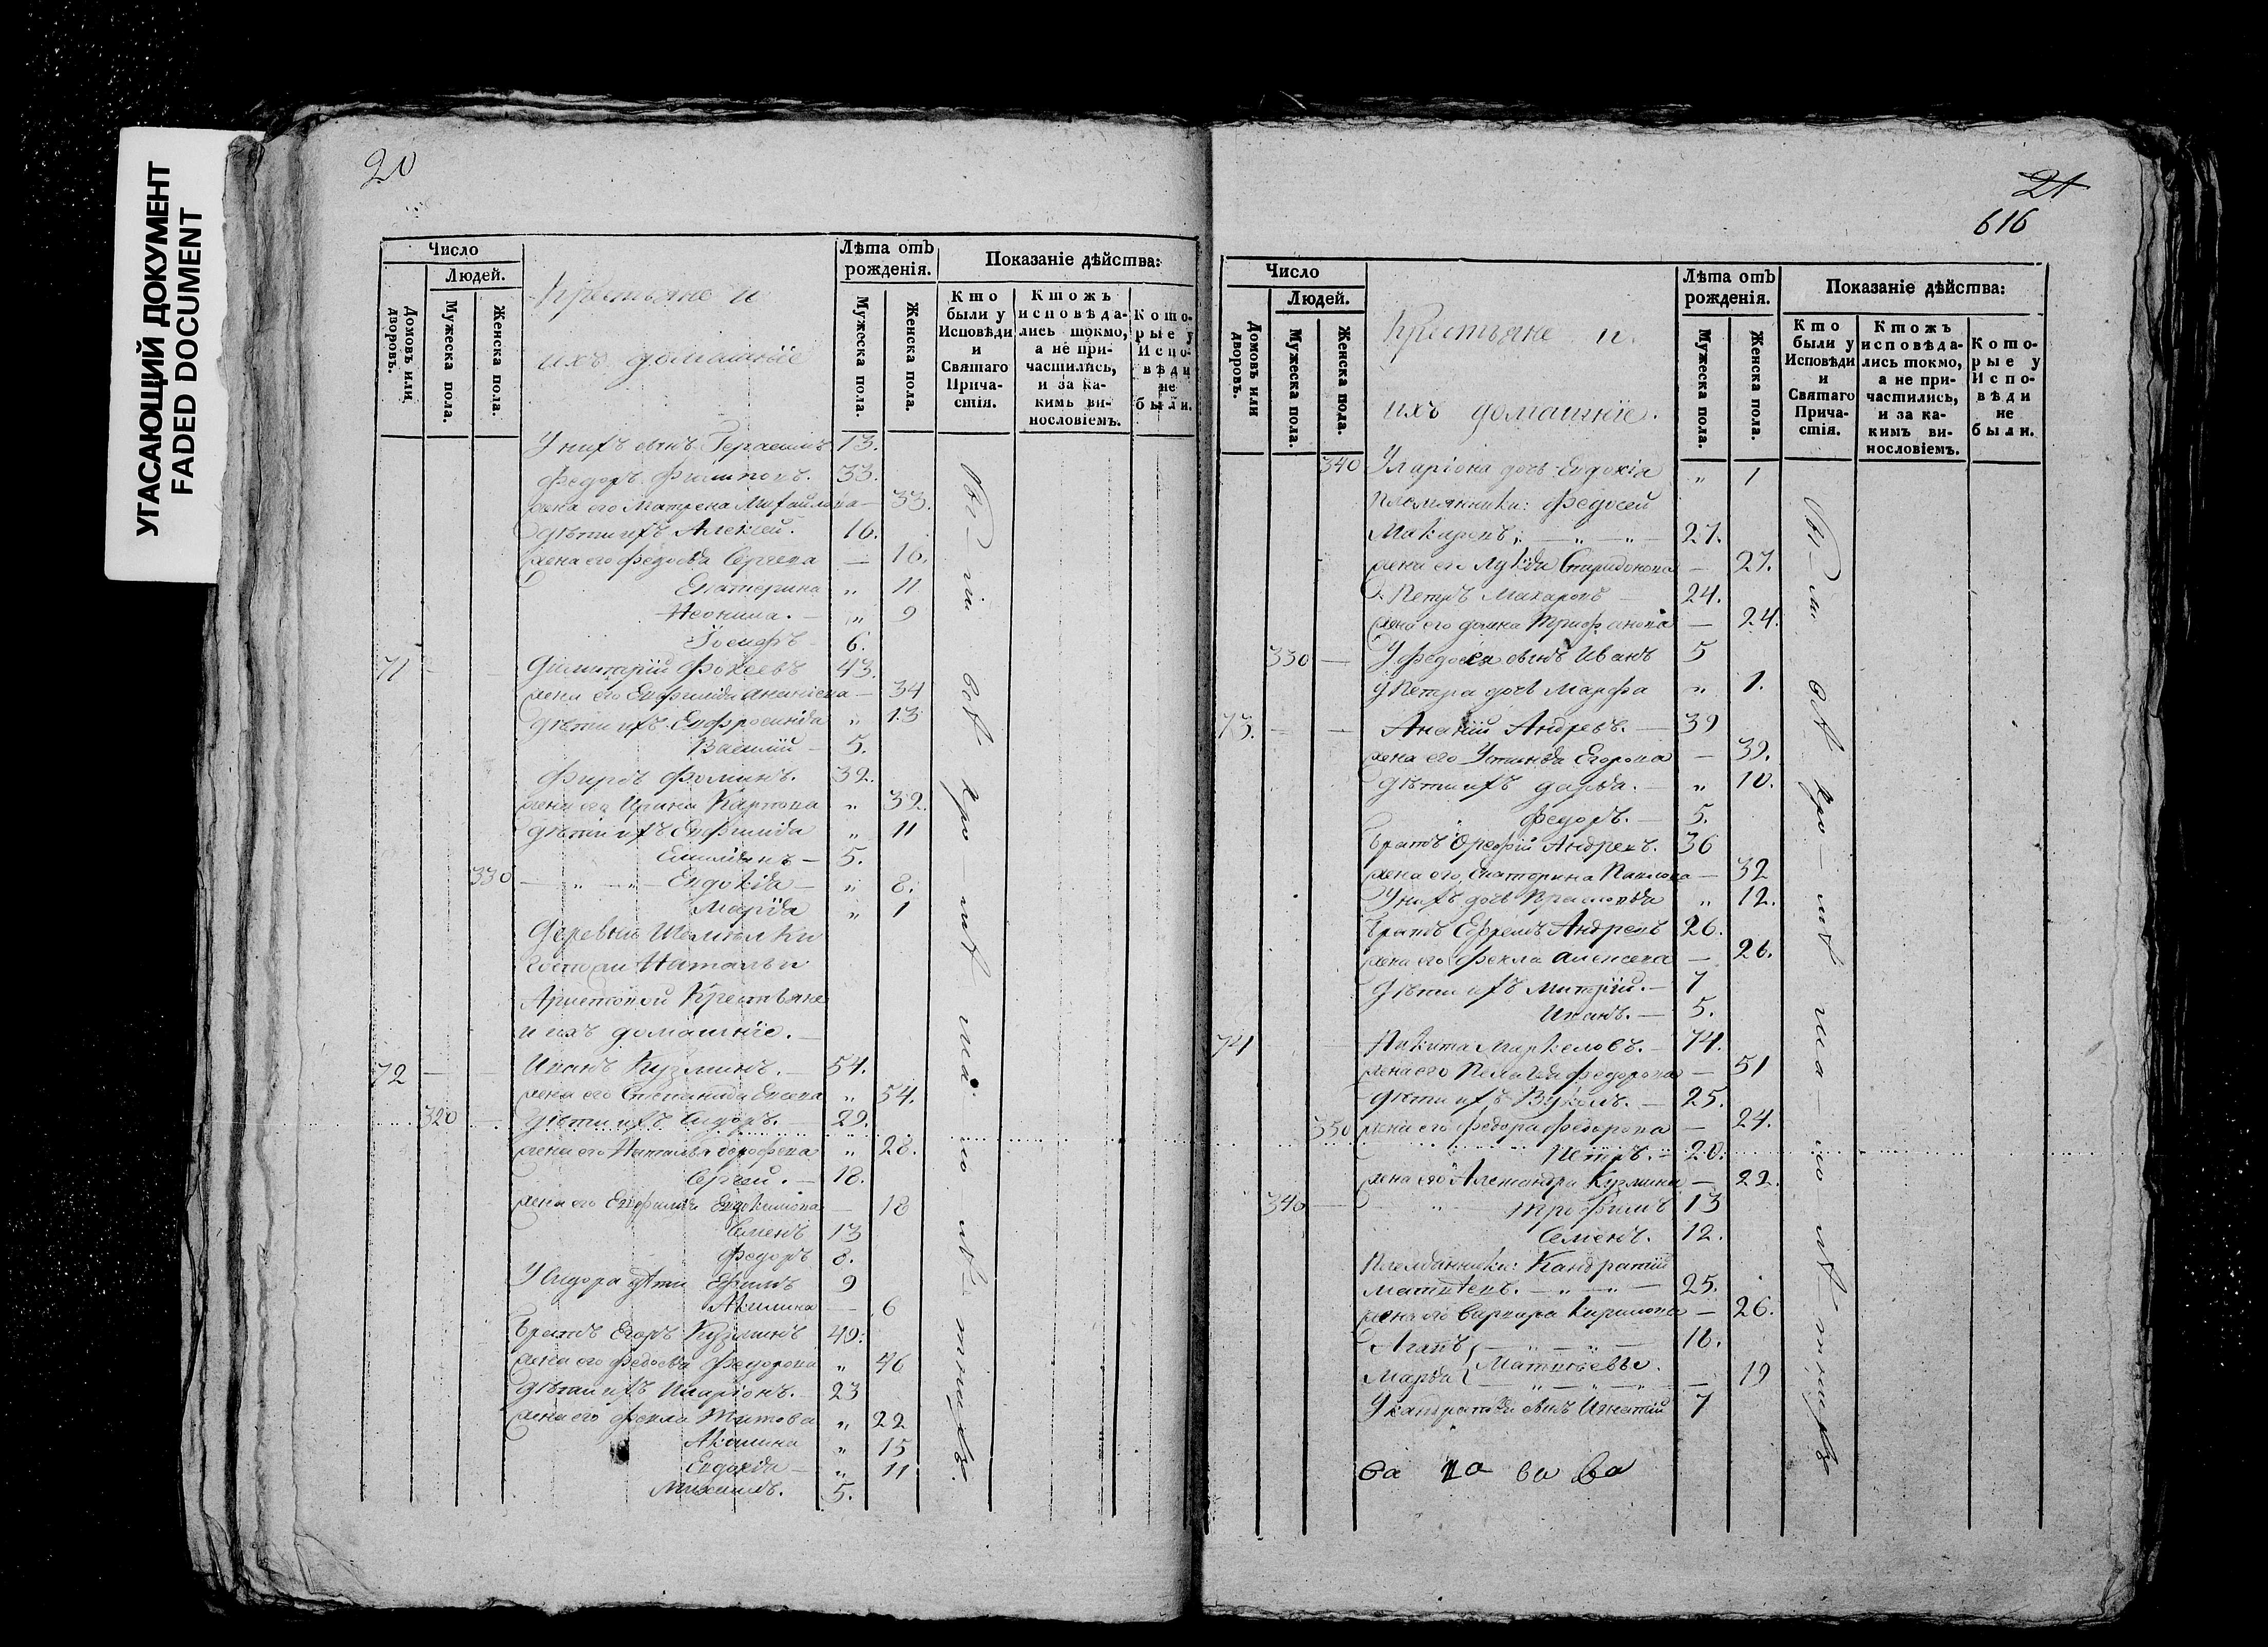 УГАСАЮЩИЙ ДОКУМЕНТ
FADED DOCUMENT
20
Число
Людей.
Домовъ или дворовъ.
Мужеска пола.
Женска пола.
Крестьяне и
ихъ домашніе
Лѣта отъ рожденія.
Мужеска пола.
Женска пола.
Показаніе дѣйства:
Кто были у Исповѣди и Святаго Прича-стія.
Ктожъ исповѣда-лись токмо, а не при-частились, и за ка-кимъ ви-нословіемъ.
Кото-рые у Испо-вѣди не были.
У нихъ сынъ Герасимъ 13.
Федоръ Филиповъ. 33.
жена его Матрена Михайлова — 33.
Дѣти ихъ Алексей. 16.
жена его Федосья Сергеева — 16.
Екатерина „ 11
Неонила. — „ 9
Іосифъ — 6.
71 — — Димитрій Фокеевъ 43.
жена его Евфимія Ананіева — 34
Дѣти ихъ Евфросинія „ 13
Василій — 5.
Фирсъ Фоминъ. 32.
жена его Ирина Карпова „ 32.
Дѣти ихъ Евфимія „ 11
Емиліянъ — 5.
330 — „ — „ — Евдокія — „ 8.
Марія „ 1
Деревни
Госпожи Натальи
Крестьяне
и ихъ домашніе. —
72 — — Иванъ Кузминъ. — 54.
жена его Степанида „ 54.
320 — Дѣти ихъ Сидоръ. — 29.
жена его Наталья Дорофеева „ 28.
Сергей. — 18.
жена его Евфимія Евдокимова — 18
Семенъ 13
Федоръ 8.
У Сидора дѣти Ефимъ 9
Акилина — 6
Братъ Егоръ Кузминъ 49.
жена его Федосья Федорова „ 46
Дѣти ихъ Иларіонъ. — 23
жена его Фекла Титова „ 22
Акилина „ 15
Евдокія — „ 11
Максимъ. 5.
21
616
Число
Людей.
Домовъ или дворовъ.
Мужеска пола.
Женска пола.
Крестьяне и
ихъ домашніе.
Лѣта отъ рожденія.
Мужеска пола.
Женска пола.
Показаніе дѣйства:
Кто были у Исповѣди и Святаго Прича-стія.
Ктожъ исповѣда-лись токмо, а не при-частились, и за ка-кимъ ви-нословіемъ.
Кото-рые у Испо-вѣди не были.
340 У Ларіона дочь Евдокія „ 1
Племянники: Федосей
Макаровъ; — „ — „ — 27.
жена его Лукія Спиридонова — 27.
Петръ Макаровъ — 24.
жена его Трифонова — 24.
330 — У Федосея сынъ Иванъ 5
У Петра дочь Марфа „ 1.
73. — — Ананій Андревъ. — 39
жена его Устинья Егорова — 39.
Дѣти ихъ Дарья. — „ 10.
Федоръ. — 5.
Братъ Андревъ. 36
жена его Екатерина Павлова — 32
У нихъ дочь Прасковья „ 12.
Братъ Ефремъ Андревъ 26.
жена его Фекла Алексева — 26.
Дѣти ихъ Митрій. — 7
Иванъ. — 5.
74 Никита Маркеловъ. — 74.
жена его Пелагія Федорова — 51
Дѣти ихъ Вуколъ. — 25.
350 жена его Федора Федорова — 24.
Петръ. — 20.
жена его Александра Кузмина — 22.
340 — Трофимъ 13
Семенъ. 12.
Племянники: Кандратій
Матвѣевъ. — „ — „ — 25.
жена его Варвара Кирилова — 26.
Агапъ — „ — „ — 18.
Матвѣевы.
Марья — „ — „ — „ — 19
У Кандратія сынъ Игнатій 7